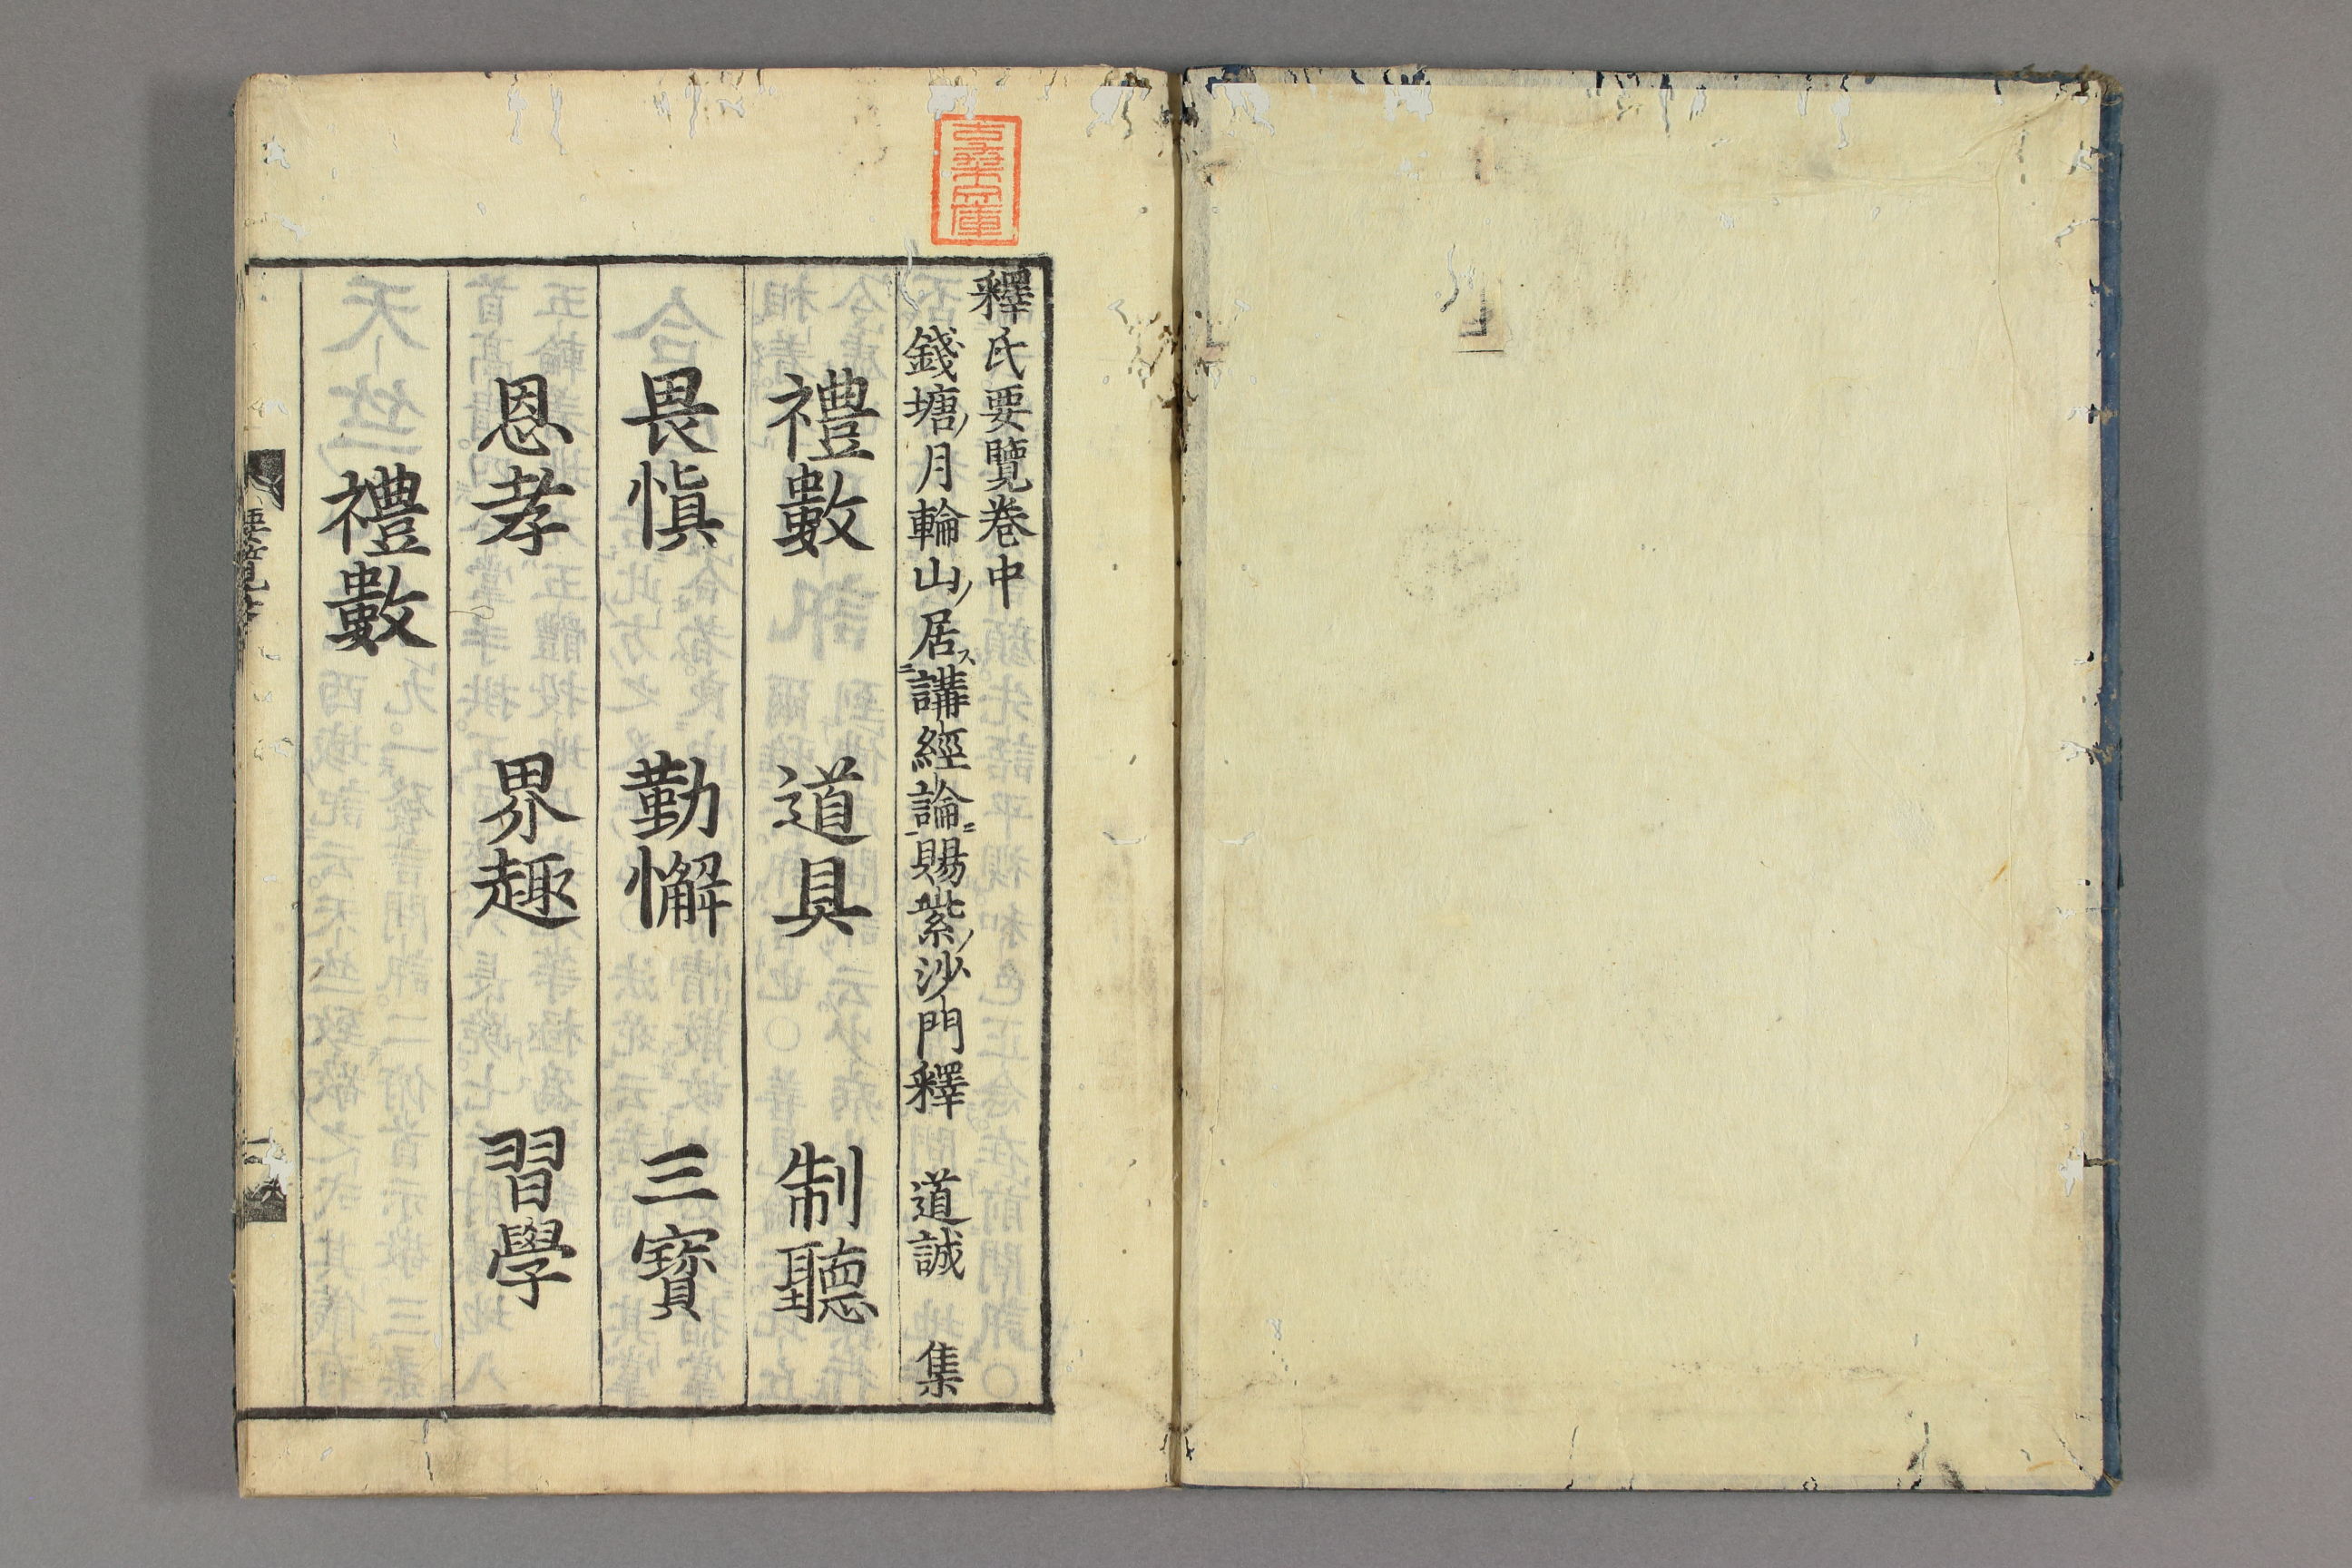 釋氏要覽卷中
錢塘ノ月輪山ノ居ス講經論ニ賜紫ノ沙門釋　道誠　集
禮數　道具　制聽
畏慎　勤懈　三寶
恩孝　界趣　習學
禮數